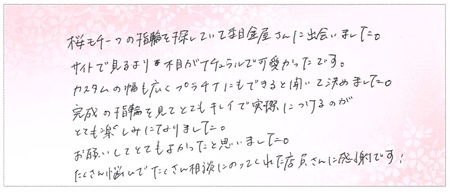 桜モチーフの指輪を探していて杢目金屋さんに出会いました。
サイトで見るより木目がナチュラルで可愛かったです。
カスタムの幅も広くプラチナにもできると聞いて決めました。
完成の指輪を見てとてもキレイで実際につけるのが
とても楽しみになりました。
お願いしてとてもよかったと思いました。
たくさん悩んでたくさん相談にのってくれた店員さんに感謝です!